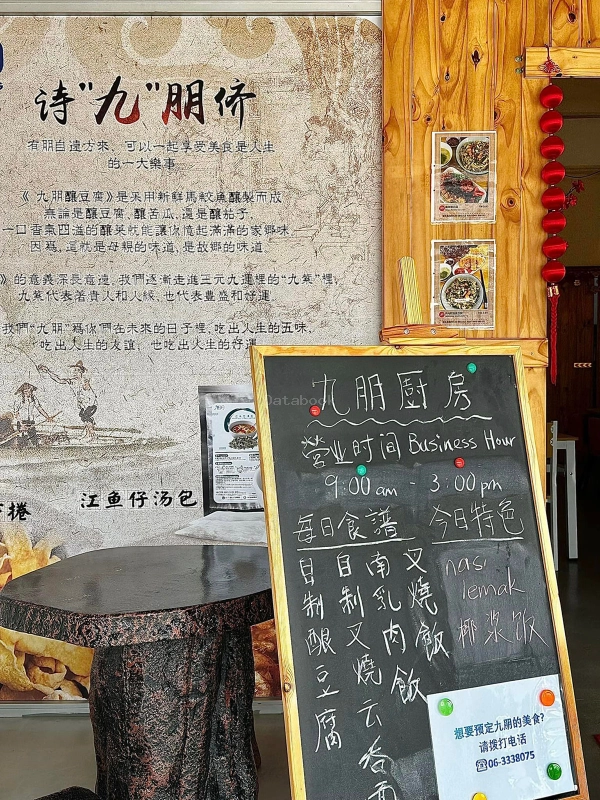 诗"九"朋侪
有朋自遠方來、可以一起享受美食是人生
的一大樂事
《 九朋釀豆腐》是采用新鮮馬鮫魚釀製而成
無論是釀豆腐、釀苦瓜、還是釀茄子、
一口香氣四溢的釀菜就能讓你憶起滿滿的家鄉味、
因爲、這就是母親的味道、是故鄉的味道
》的意義深長意遠、我們逐漸走進三元九運裡的"九紫"裡、
九紫代表著貴人和人緣、也代表豐盛和好運
我們"九朋"爲你們在未來的日子裡、吃出人生的五味、
吃出人生的友誼、也吃出人生的好運
捲
江鱼仔汤包
Databook
九朋厨房
營业时间 Business Hour
9:00 am - 3:00 pm
每日食譜
自制酿豆腐
自制叉燒云吞面
南乳肉飯
叉燒飯
今日特色
nasi
lemak
椰浆饭
想要预定九朋的美食?
请拨打电话
☎06-3338075